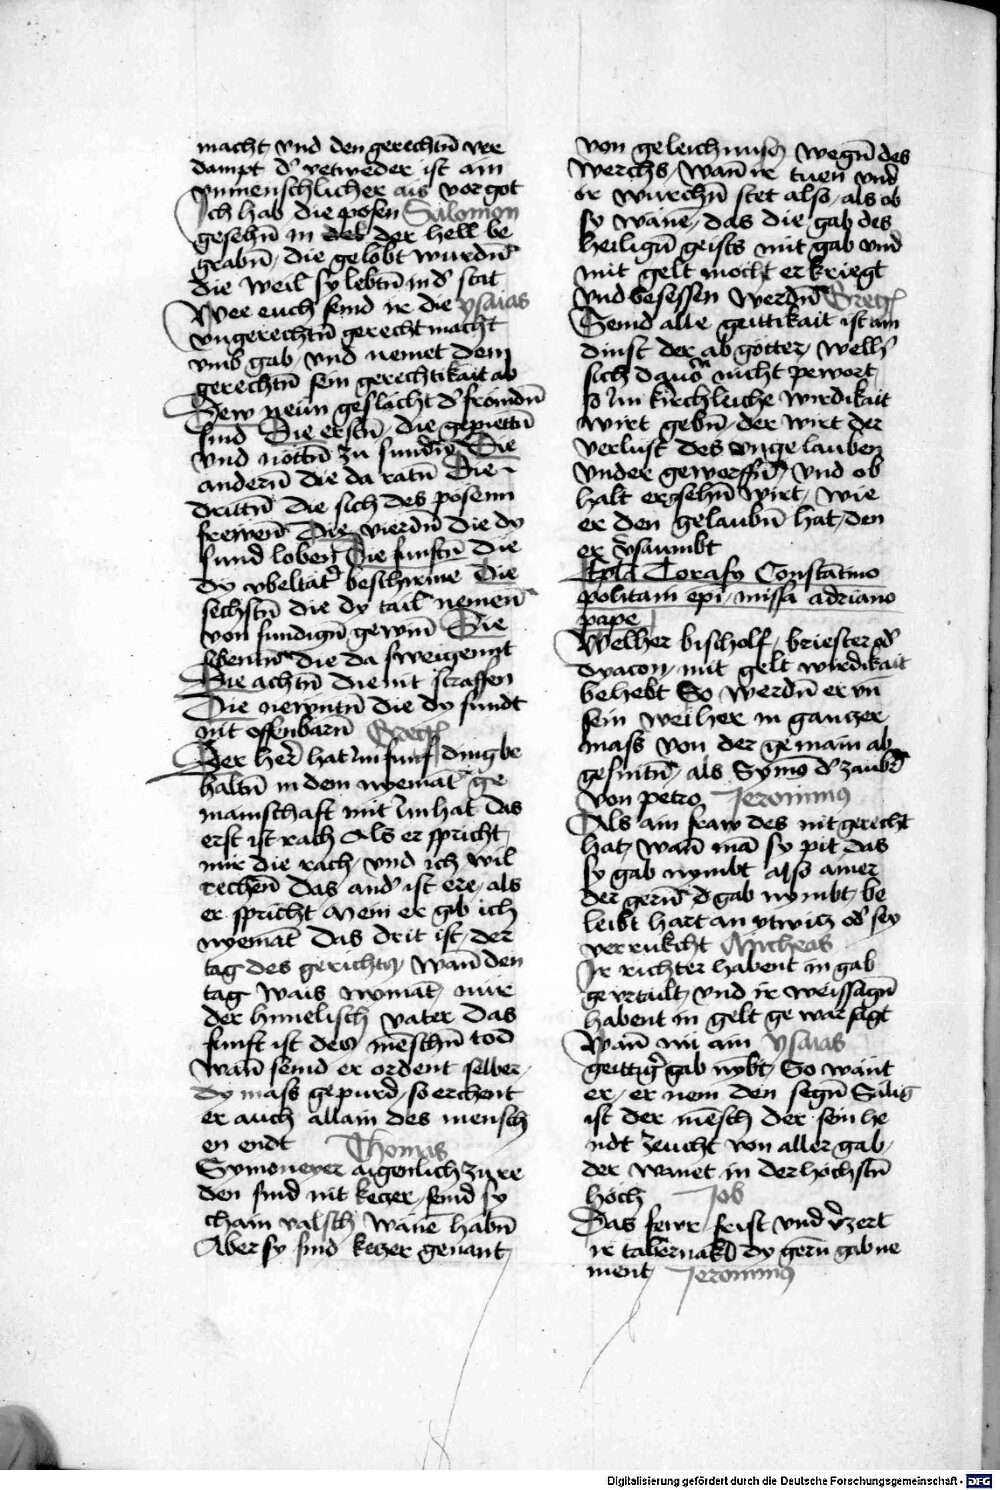 macht vnd den gerechtn̄ ver
dampt d' yetweder ist ain
vnmenschlicher ais vor got
Ich hab die posen Salomon
gesehn̄ in der hell be
grabn̄ / die gelobt wurdn̄
die weil sy lebtn̄ in d' stat
Wee euch seind ir die ysaias
vngerechtn̄ gerecht macht
vmb gab / vnd nemet dem
gerechtn̄ sein gerechtikait ab
Dew neun geslächt d' frömdn̄
sünd Die erstn̄ / die gepiettn̄
vnd nöttn̄ zu sundn̄ Die
andern̄ die da ratn̄ Die
drittn̄ die sich des pösenn
frewen̄ Die vierdn̄ die dy
sund loben̄ Die funftn̄ die
dy vbeltät' beschirme Die
sechstn̄ die dy tail nemen̄
von sundign̄ gewin̄ Die
sibentn̄ die da sweigennt
Die achtn̄ die nit straffen
Die newntn̄ die dy sundt
nit offenbarn̄ Greg
Der her̄ hat im funf ding be
haltn̄ in dem nyemāt ge
mainschaft mit im hat das
erst ist rach Als er spricht
mir die rach / vnd ich wil
rechen̄ das and' ist ere / als
er spricht Mein er gib ich
nyemāt Das drit ist / der
tag des gerichtz / wan̄ den
tag wais nymāt / nuir
der himelisch vater Das
funft ist des mēschn̄ tod
wan̄ seind er ordent selber /
dy mass gepurd / so erchent
er auch allain des mensch
en endt Thomas
Symoneyer aigenlich zu re
den sind nit keczer / seind sy
chain valsch wānē habn̄
Aber sy sind keczer genant /
von geleichnuss wegn̄ des
werchs / wan̄ ir tuen vnd
ir wurchn̄ stet also / als ob
sy wāne / das die gab des
heilign̄ geists mit gab vnd
mit gelt mocht erkriegt
vnd besessen werdn̄ Greg
Seind alle geittikait ist ain
dinst der abgötter / well'
sich dauō nicht pewort
so im kirchleiche wirdikait
wirt gebn̄ / der wirt der
verlust des vngelauben
vnder geworffn̄ / vnd ob
halt er gesehn̄ wirt / wie
er den gelaubn̄ hat / den
er v̄saumbt
Epla Torasy Constātino
politani epi / missa adriano
pape
Welher bischolf / briester od'
dyacon / mit gelt wirdikait
behebt So werdn̄ er vn̄
sein weiher in ganczer
mass von der gemain ab
gesnitn̄ / als Symō d' zaubr̄
von petro Jeronimus
Als ain fraw des nit gerecht
hat / wan̄ mā sy pit das
sy gab nymbt also ainer
der gern̄ d' gab nymbt / be
leibt hart an ytwicz od' sey
verrukcht Micheas
Ir richter habent in gab
geurtailt / vnd ir weissagn̄
habent in gelt gewarsagt
Wan̄ nu ain ysaias
geittig' gab nybt / So wānt
er / er nem den segn̄ Sälig
ist der mēsch der sein he
ndt zeucht von aller gab /
der wanet in der hochstn̄
höch Job
Das fewr / frist vnd v̄zert
ir tabernakl dy gern̄ gab ne
ment / Jeronimus
Digitalisierung gefördert durch die Deutsche Forschungsgemeinschaft - DFG